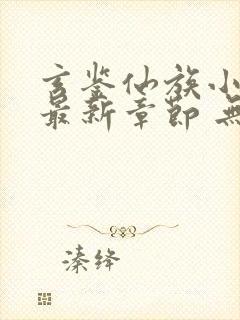 玄鉴仙族小
最新章节 无
溱绛